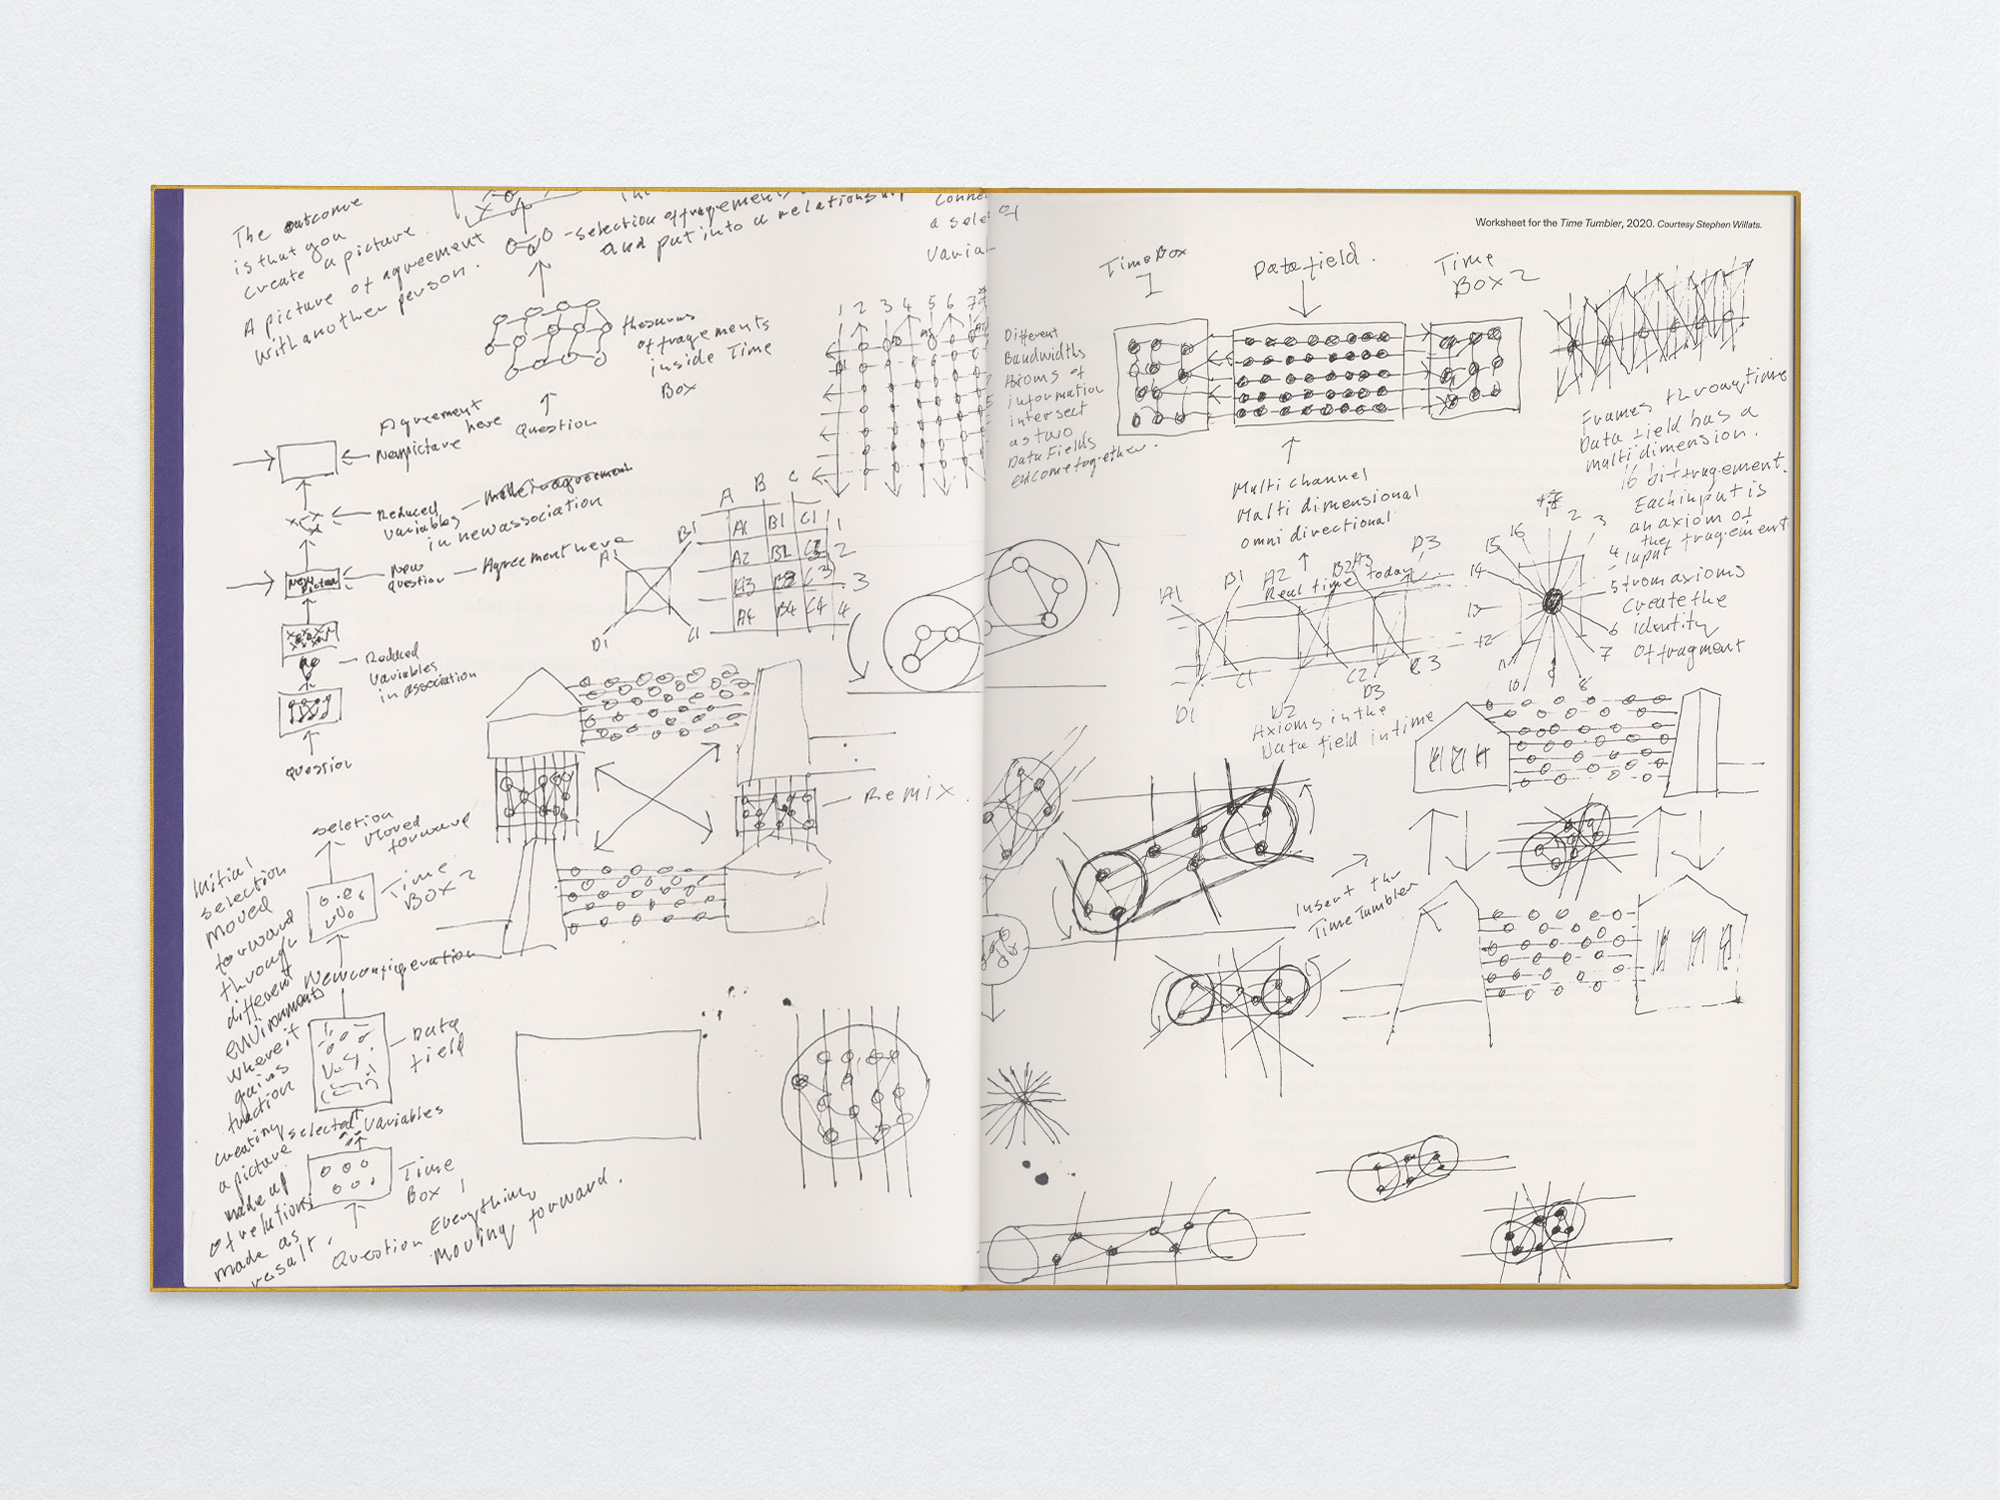 The outcome
is that you
create a picture.
A picture of agreement
with another person.
- selection of fragements
and put into a relationship
thesaurus
of fragements
inside Time
Box
Question
Agreement
here
New picture
Reduced
variables
in new association
New
question
Agreement here
New
Picture
Reduced
variables
in association
question
1 2 3 4 5 6 7
A B C
A1 B1 C1 1
A2 B2 C2 2
A3 B3 C3 3
A4 B4 C4 4
A1
B1
D1
C1
Remix.
seletion
moved
forward
Time
Box 2
Initial
selection
moved
forward
through
different
environments
where it
gains
function
creating
a picture
made up
of relutions
made as
result.
New configeration
Data
field
selected variables
Time
Box 1
Question Everything
moving forward.
Worksheet for the Time Tumbler, 2020. Courtesy Stephen Willats.
Time Box
1
Data field.
Time
Box 2
Different
Bandwidths
Axioms of
information
intersect
as two
Data Fields
come together.
Multi channel
Multi dimensional
omni directional
Real time today
A1 B1 A2 B2 A3 B3
D1 C1 D2 C2 D3 C3
Axioms in the
Data field in time
Frames through time
Data field has a
multi dimension.
16 bit fragement.
Each input is
an axiom of
the fragement
Input
from axioms
create the
identity
of fragment
2 3 4 5 6 7 8 9 10 11 12 13 14 15 16
Insert the
Time Tumbler